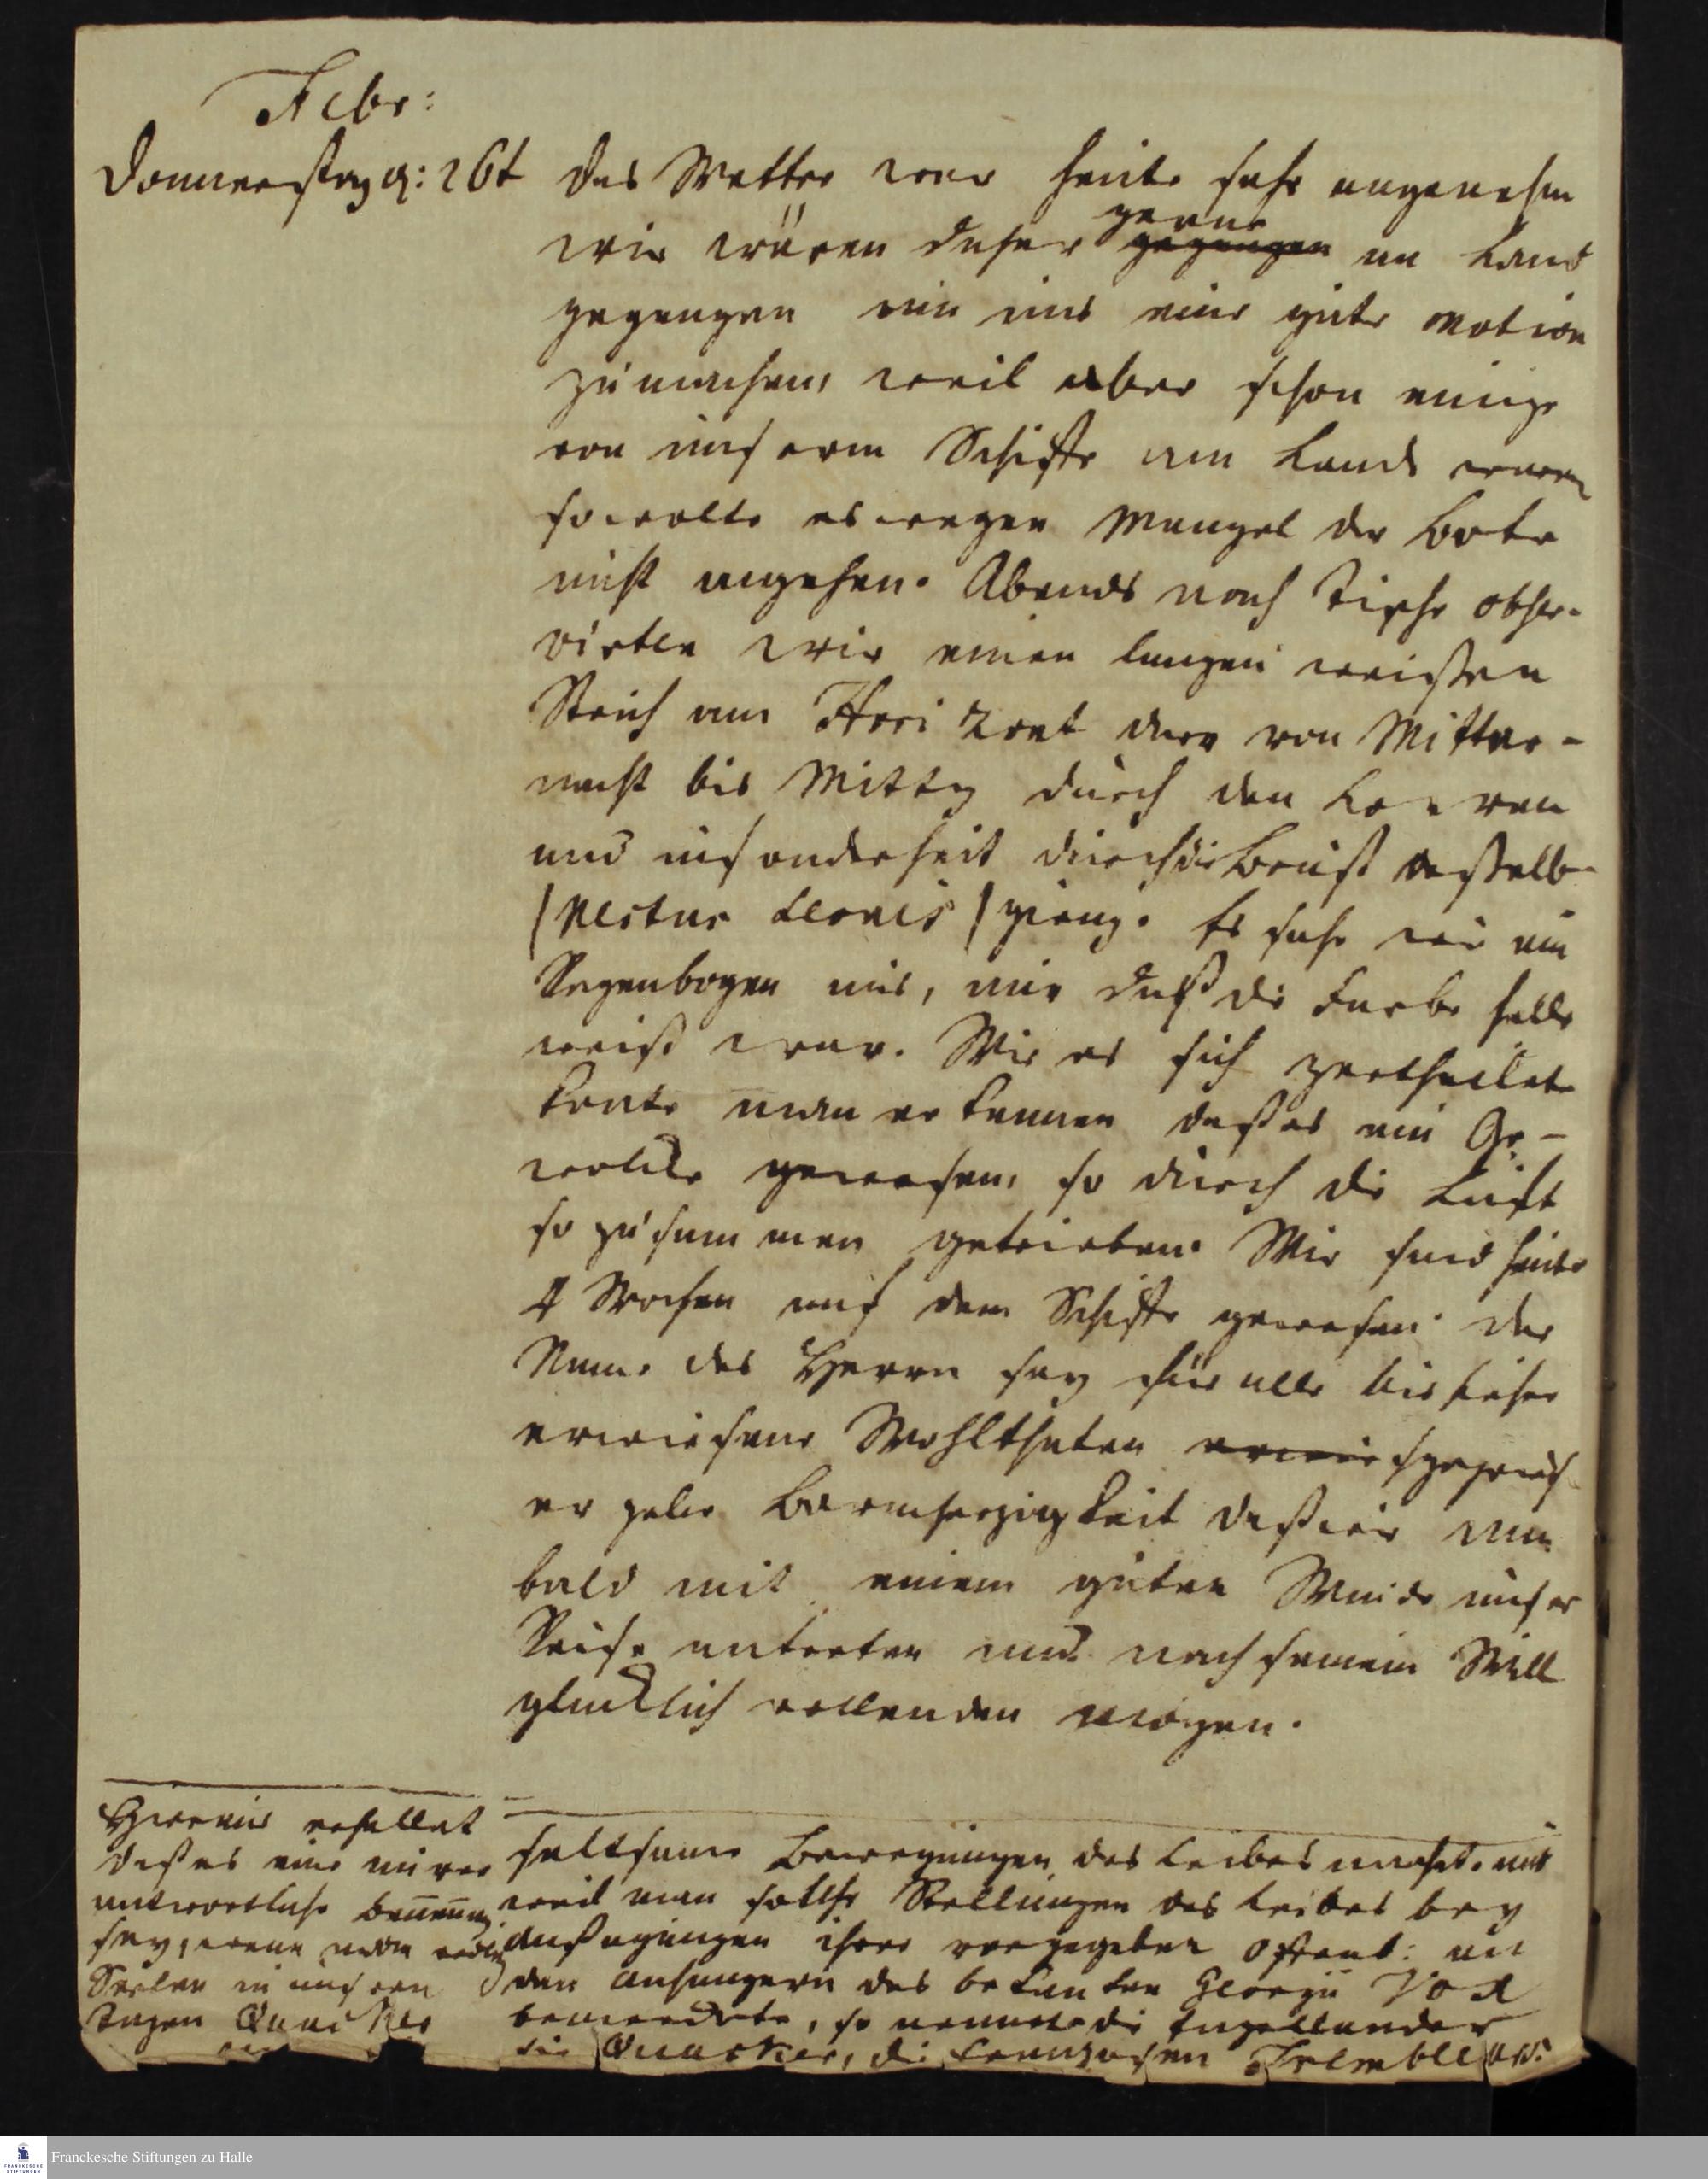 Febr:
Donnerstag d: 26t das Wetter war heute sehr angenehm
wir wären daher gerne gegangen an Land
gegangen um uns eine gute motion
zu machen, weil aber schon einige
von unserm Schiffe am Lande waren
so wolte es wegen Mangel der Bote
nicht angehen. Abends nach Tische obser-
virten wir einen langen weissen
Strich am Horizont der von Mitter-
nacht bis Mittag durch den Lowen
und insonderheit durch die Brust desselben
(Pectus Leonis) gieng. Es sahe wie ein
Regenbogen aus, nur daß die Farbe helle
weiß war. Wie es sich zertheilete
konte man erkennen daß es ein Ge-
wolcke gewesen, so durch die Luft
so zusammen getrieben. Wir sind heute
4 Wochen auf dem Schiffe gewesen. der
Name des Herrn sey für alle bishieher
erwiesene Wohlthaten
er gebe Barmherzigkeit daß wir nun
bald mit einem guten Winde unser
Reise antreten und nach seinem Will
glücklich vollenden mögen.
Hieraus erhellet
daß es eine unver
antwortliche Benennung
sey, wenn man
Seelen in unsern
Tagen Quacker
seltsame Bewegungen des Leibes machte. und
weil man solche Stellungen des Leibes bey
Außagungen ihrer vorgegeben Offenb: an
den Anhängern des bekanten Georgii Fox
bemerckete, so nennete die Engelländer
sie Quacker, die Franzosen Trembleurs.
Franckesche Stiftungen zu Halle